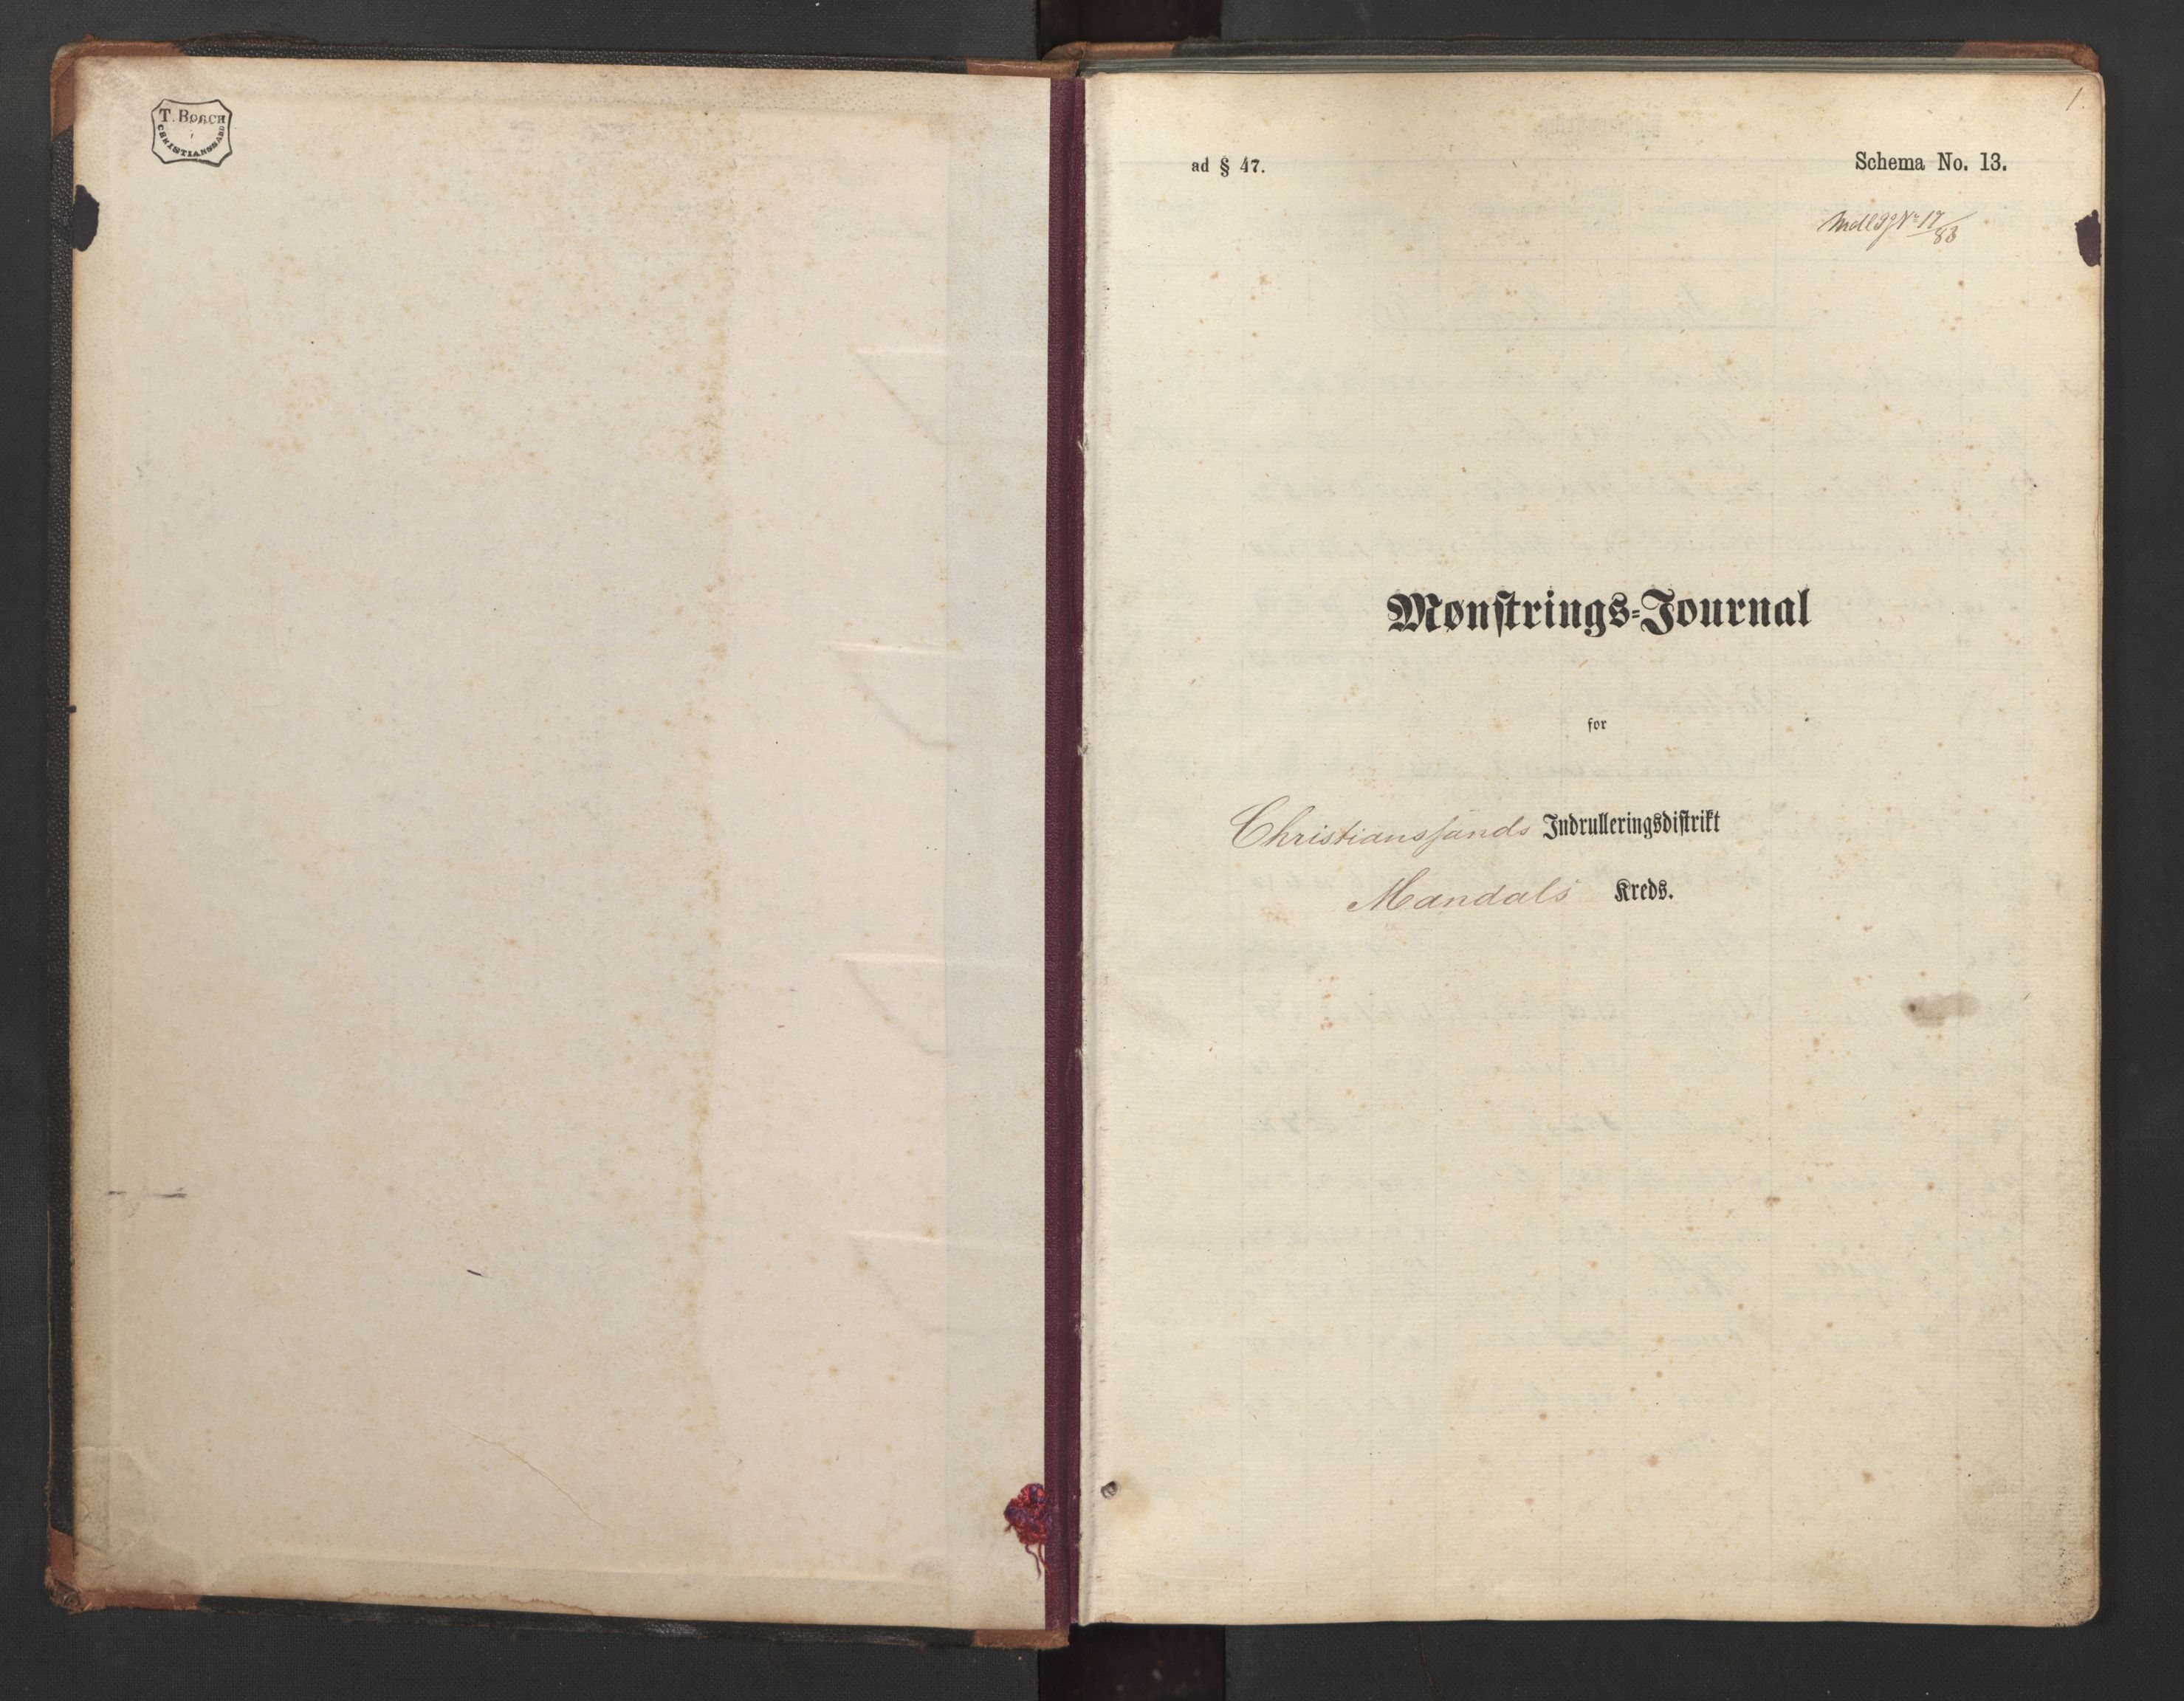 T. BORCH
CHRISTIANSSAND
1.
ad § 47.
Schema No. 13.
No 17/83
Mønstrings-Journal
for
Christianssands Indrulleringsdistrikt
Mandals Kreds.